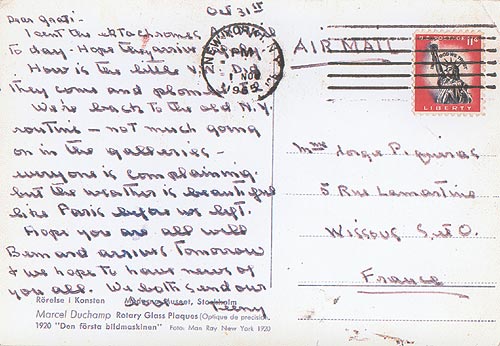 Oct 31st
Dear Grati.
I sent the ektachromes
to day - Hope they arrive
How is the little V. Did
they come and plomb
We're back to the old N.Y.
routine - not much going
on in the galleries -
everyone is complaining.
but the weather is beautiful
like Paris before we left.
Hope you are all well
Bernard arrives Tomorrow
& we hope to have news of
you all. We both send our
love Teeny
Rörelse i Konsten Moderna Museet, Stockholm
Marcel Duchamp Rotary Glass Plaques (Optique de precision)
1920 "Den första bildmaskinen" Foto: Man Ray New York 1920
NEW YORK, N.Y.
PM
1 NOV
AIR MAIL
U.S. POSTAGE 11¢
LIBERTY
Mme Jorge Piqueras
5 Rue Lamartine
Wissous S. et O.
France